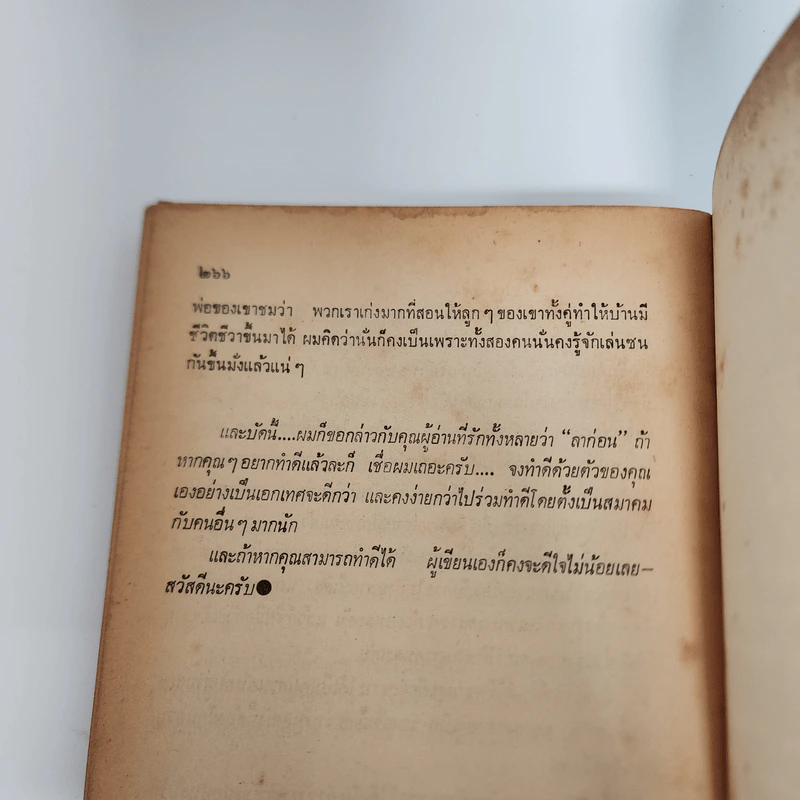 ๒๖๖
พ่อของเขาชมว่า พวกเราเก่งมากที่สอนให้ลูก ๆ ของเขาทั้งคู่ทำให้บ้านมี
ชีวิตชีวาขึ้นมาได้ ผมคิดว่านั่นก็คงเป็นเพราะทั้งสองคนนั่นคงรู้จักเล่นซน
กันขึ้นมั่งแล้วแน่ ๆ
และบัดนี้....ผมก็ขอกล่าวกับคุณผู้อ่านที่รักทั้งหลายว่า “ลาก่อน” ถ้า
หากคุณ ๆ อยากทำดีแล้วละก็ เชื่อผมเถอะครับ.... จงทำดีด้วยตัวของคุณ
เองอย่างเป็นเอกเทศจะดีกว่า และคงง่ายกว่าไปร่วมทำดีโดยตั้งเป็นสมาคม
กับคนอื่น ๆ มากนัก
และถ้าหากคุณสามารถทำดีได้ ผู้เขียนเองก็คงจะดีใจไม่น้อยเลย—
สวัสดีนะครับ●